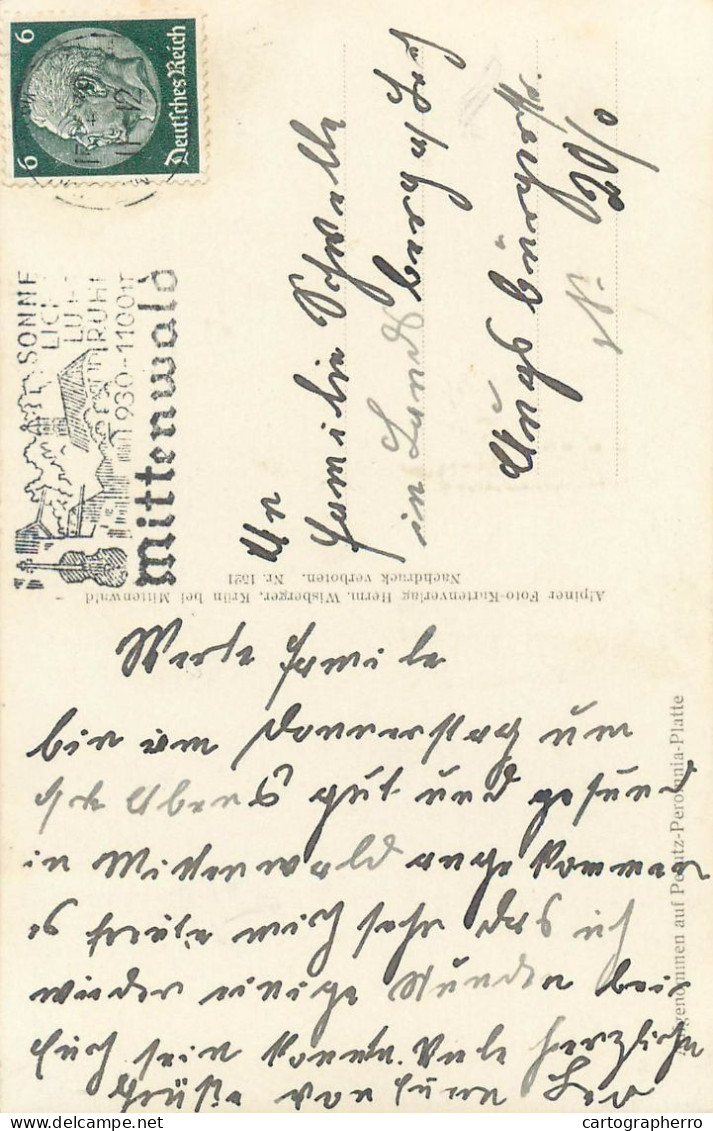 6 6
Deutsches Reich
SONNE
LICHT
LUFT
RUHE
930-1100m
Mittenwald
An
Familie Schwelle
in Landsberg a/Lech
Augsburgerstr.
N. 20/0
Alpiner Foto-Kartenverlag Herm. Wisberger, Krün bei Mittenwald
Nachdruck verboten. Nr. 1521
Aufgenommen auf Perutz-Peromnia-Platte
Werte Familie
bin am Donnerstag um
Abends gut und gesund
in Mittenwald angekommen
es freute mich sehr das ich
wieder einige Stunden bei
Euch sein konnte. Viele herzliche
Grüße von Eurem Leo
cartographerro
delcampe.net